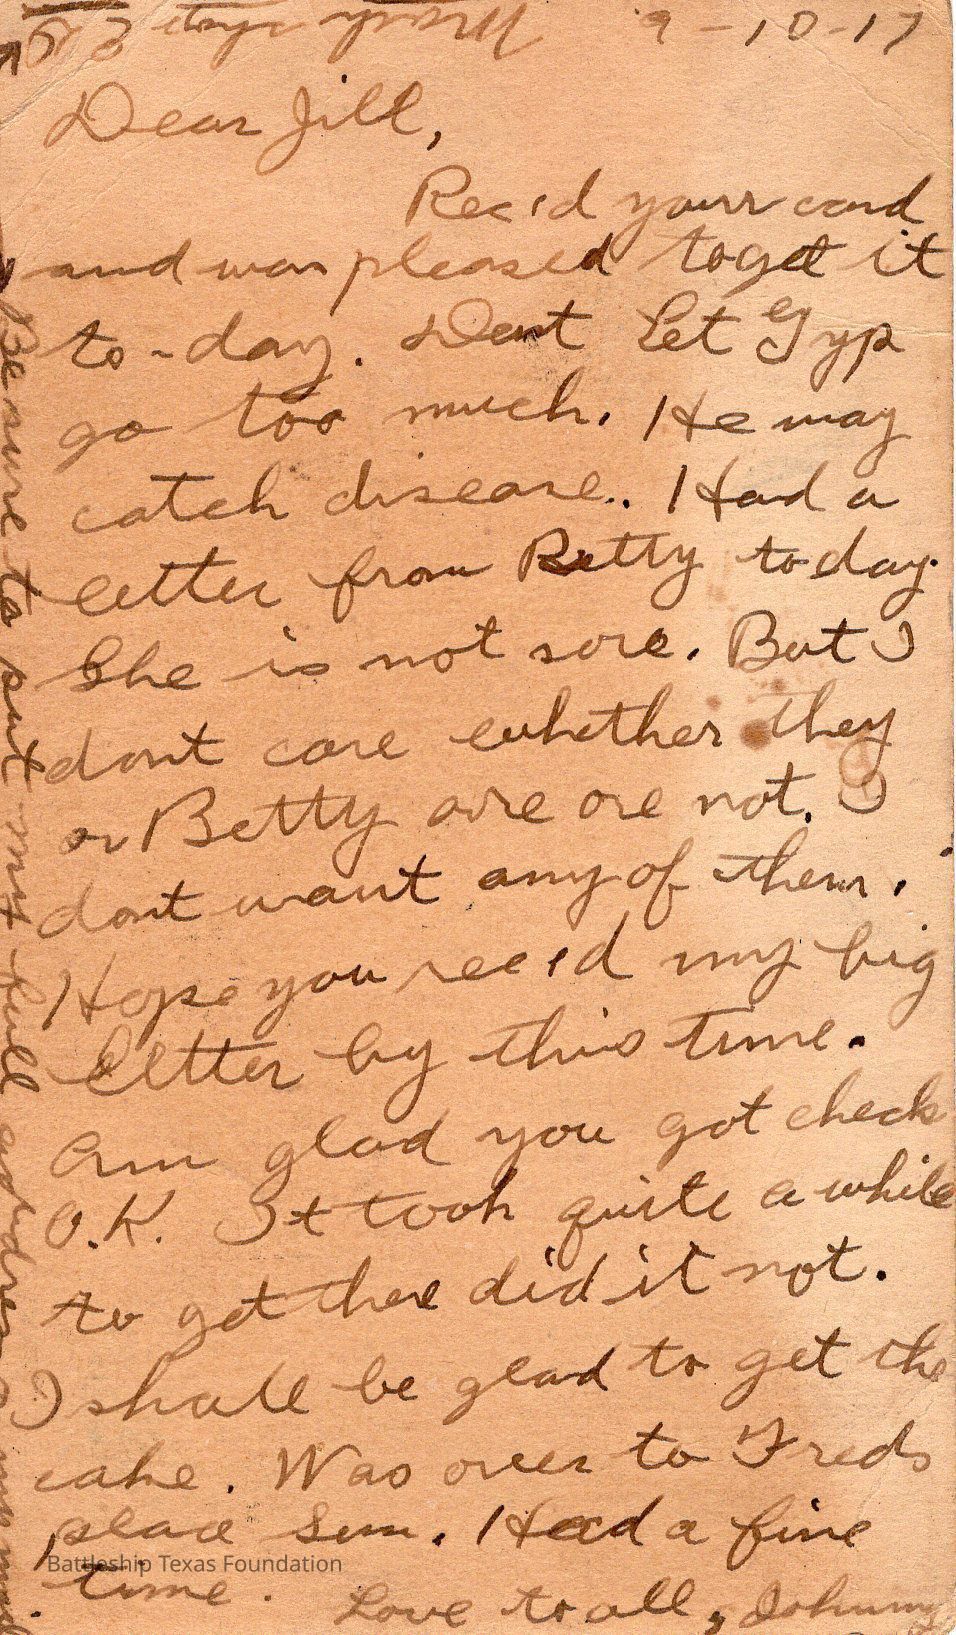 9-10-17
Dear Jill,
Rec'd your card
and was pleased to get it
to-day. Dont Let Gyp
go too much. He may
catch disease. Had a
letter from Betty today.
She is not sore. But I
dont care whether they
or Betty are ore not. I
dont want any of them.
Hope you rec'd my big
letter by this time.
Am glad you got check
O.K. It took quite a while
to get there did it not.
I shall be glad to get the
cake. Was over to Freds
place Sun. Had a fine
time.
Love to all, Johnny
Be sure to put my full address on my
Battleship Texas Foundation